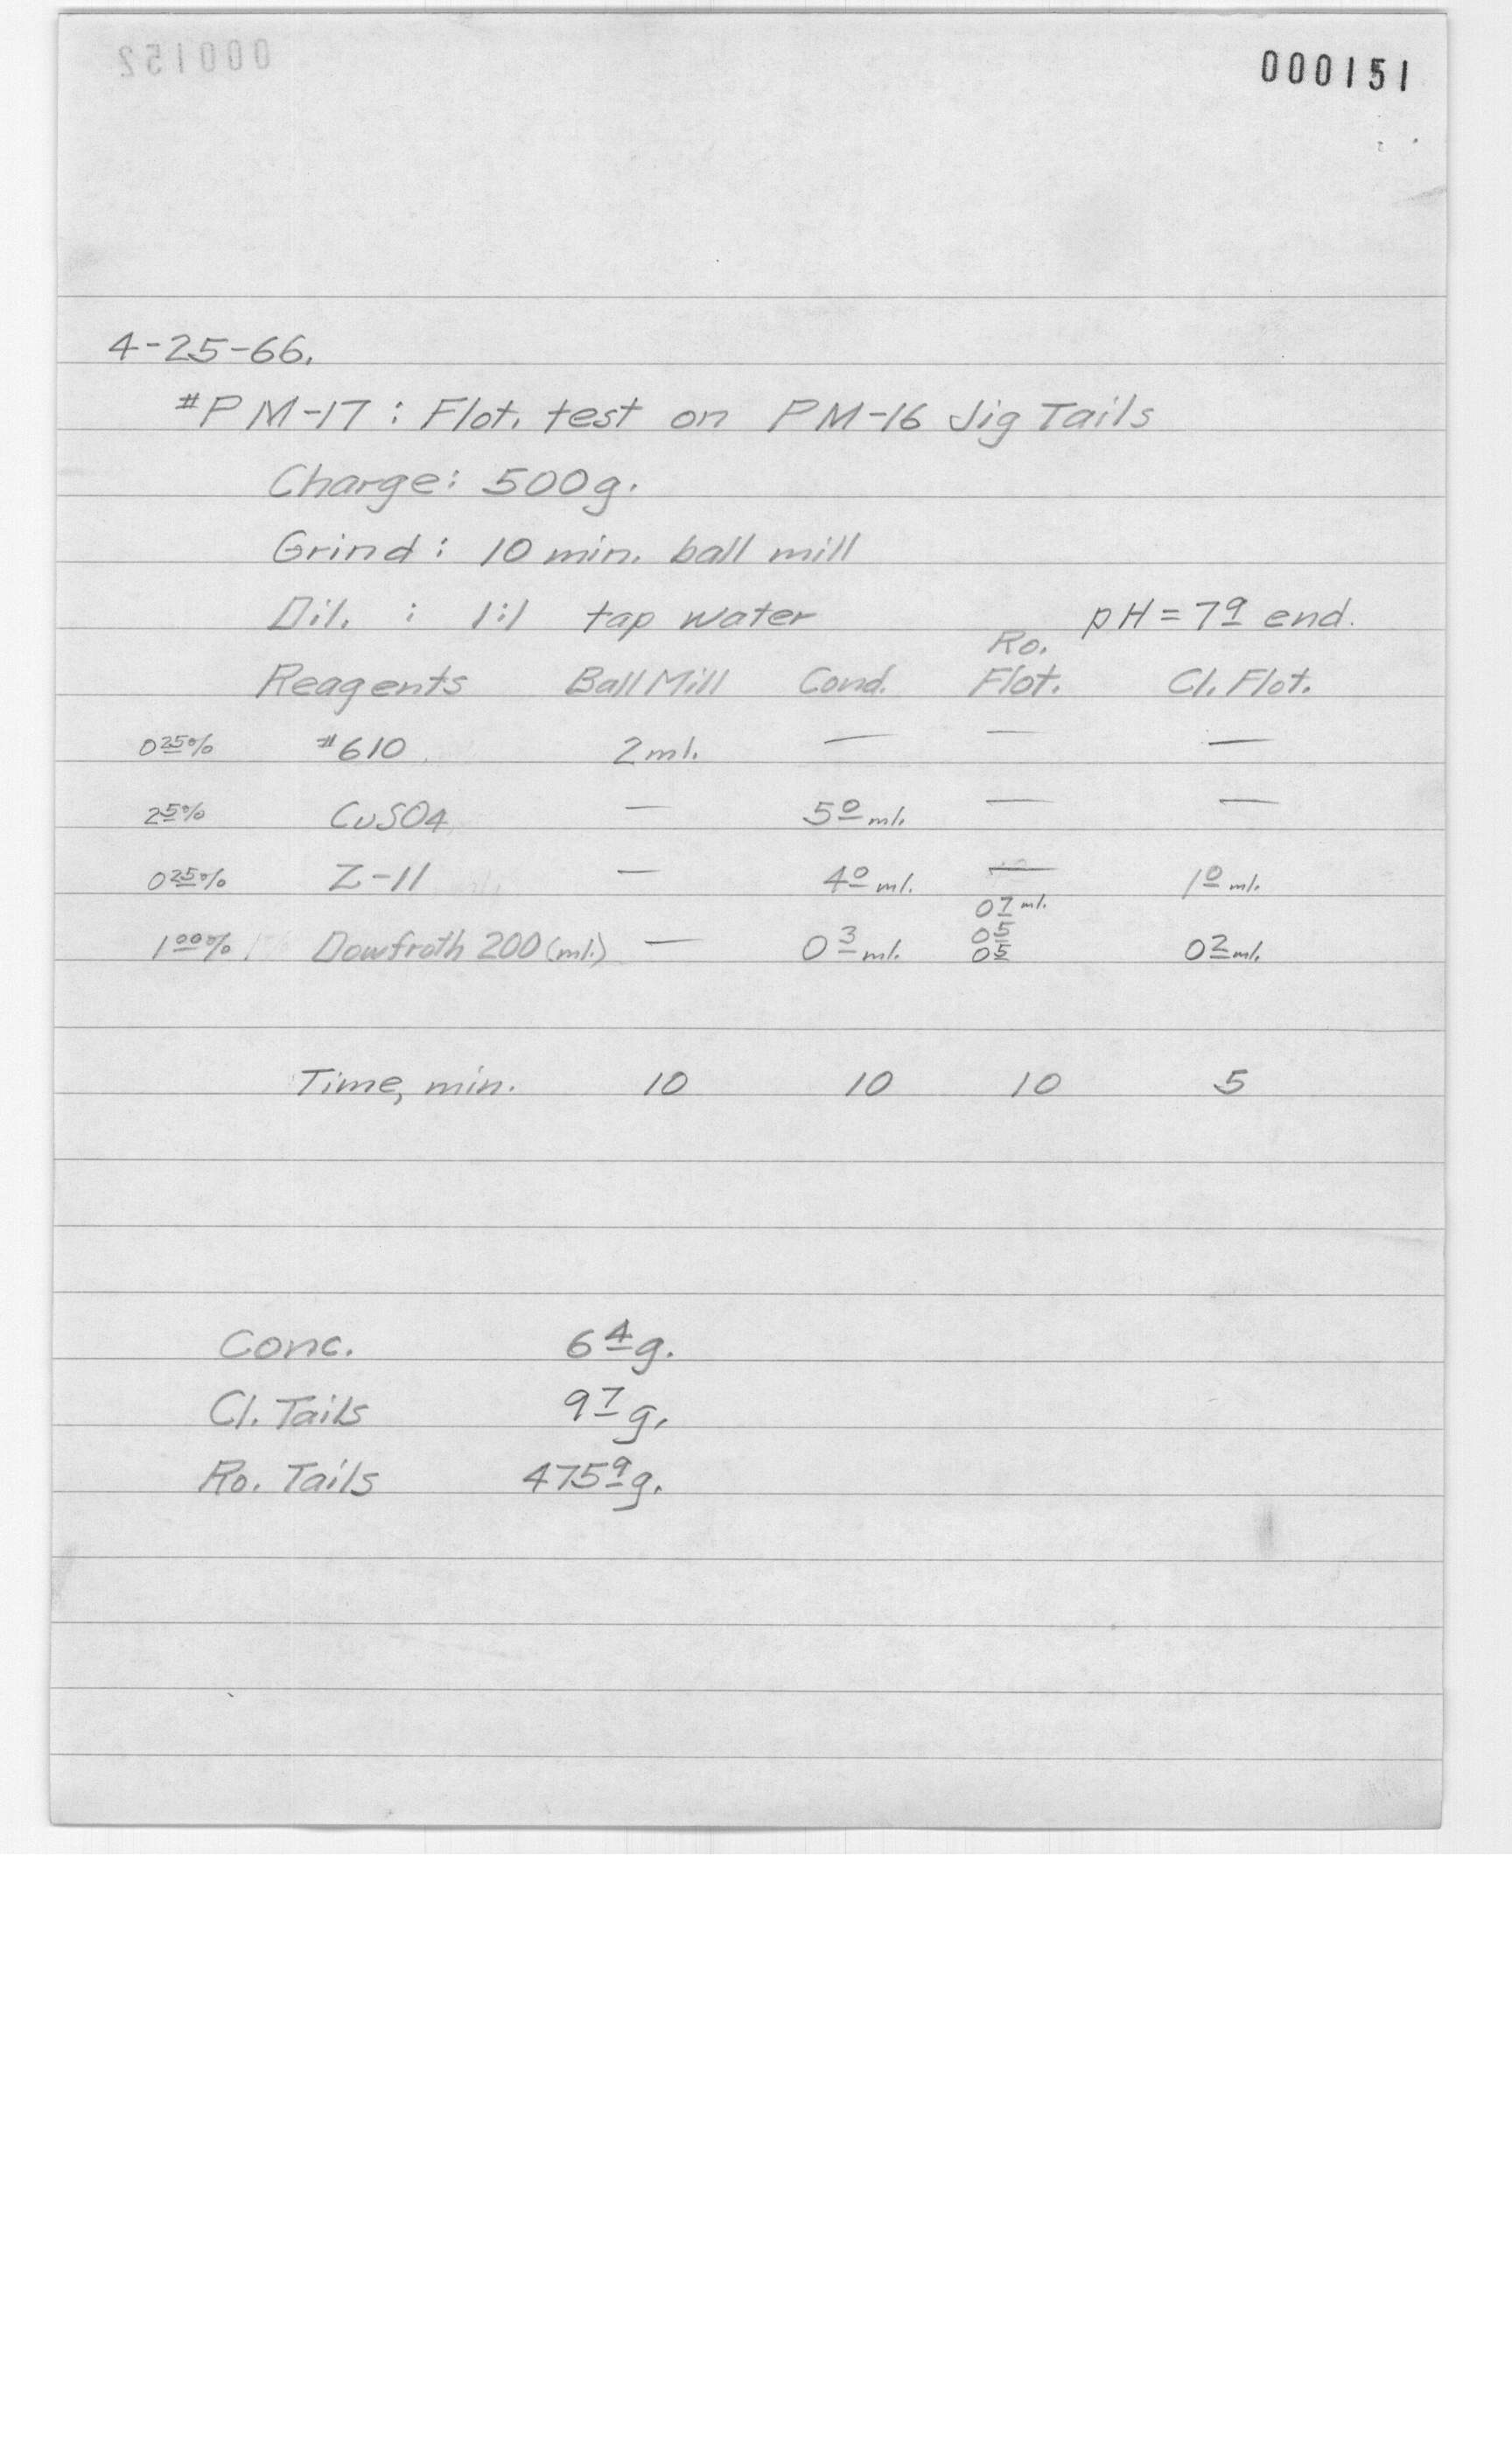 000151
4-25-66.
#PM-17: Flot. test on PM-16 Jig Tails
Charge: 500g.
Grind: 10 min. ball mill
Dil. : 1:1 tap water pH = 7⁹ end.
Ro.
Reagents Ball Mill Cond. Flot. Cl. Flot.
0²⁵% #610 2 ml. — — —
2⁵% CuSO4 — 5⁰ ml. — —
0²⁵% Z-11 — 4⁰ ml. — 1⁰ ml.
0⁷ ml.
0⁵
1⁰⁰% Dowfroth 200 (ml.) — 0³ ml. 0⁵ 0² ml.
Time, min. 10 10 10 5
Conc. 6⁴ g.
Cl. Tails 9⁷ g.
Ro. Tails 475⁹ g.